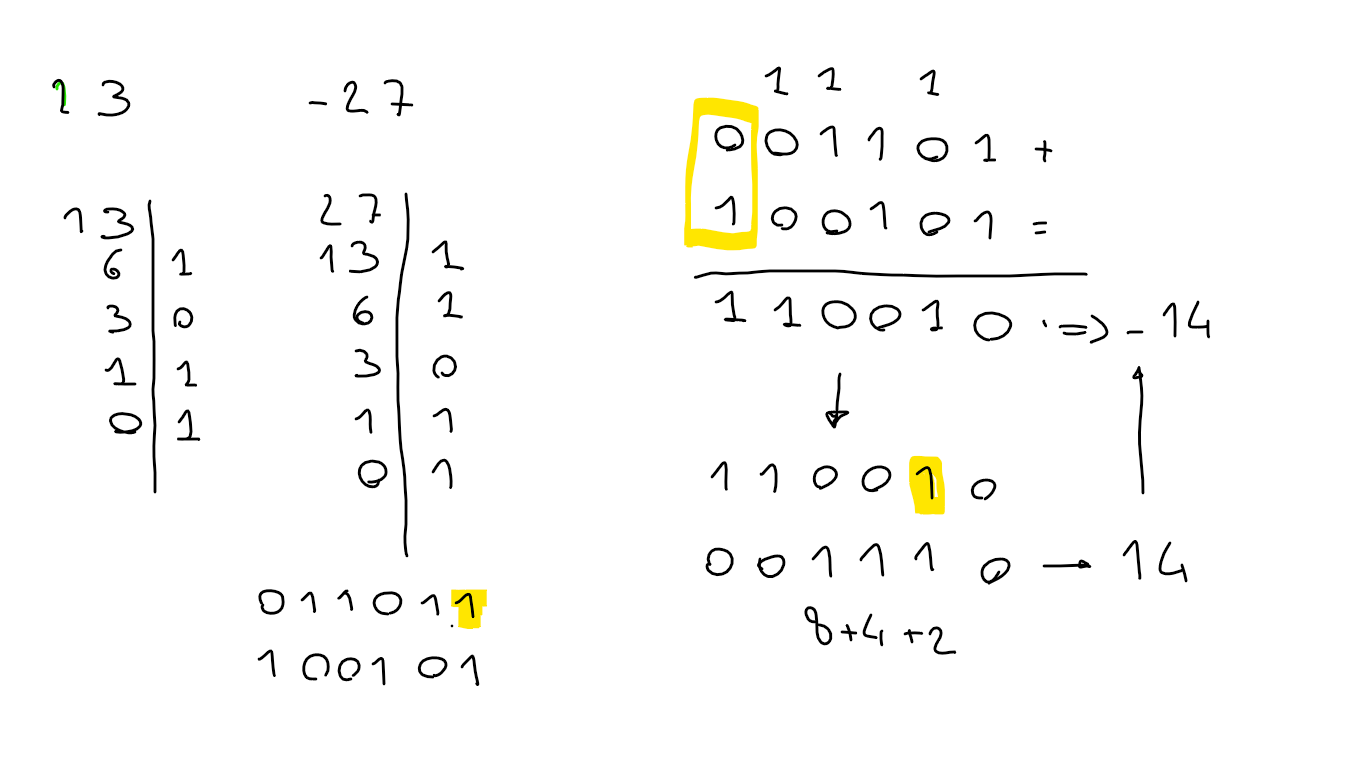 13
-27
13
6 1
3 0
1 1
0 1
27
13 1
6 1
3 0
1 1
0 1
011011
100101
1 1 1
001101 +
100101 =
110010 => -14
110010
001110 → 14
8+4+2